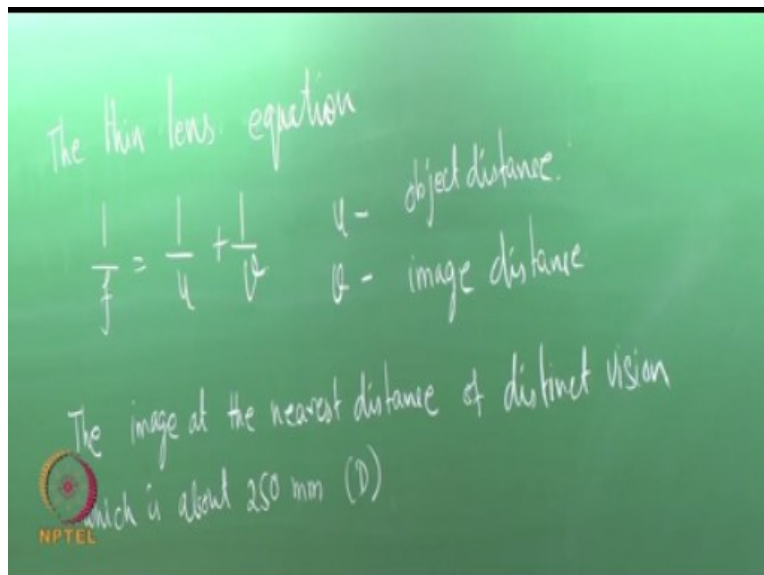 The thin lens equation
1/f = 1/u + 1/v    u - object distance.
v - image distance
The image at the nearest distance of distinct vision
which is about 250 mm (D)
NPTEL